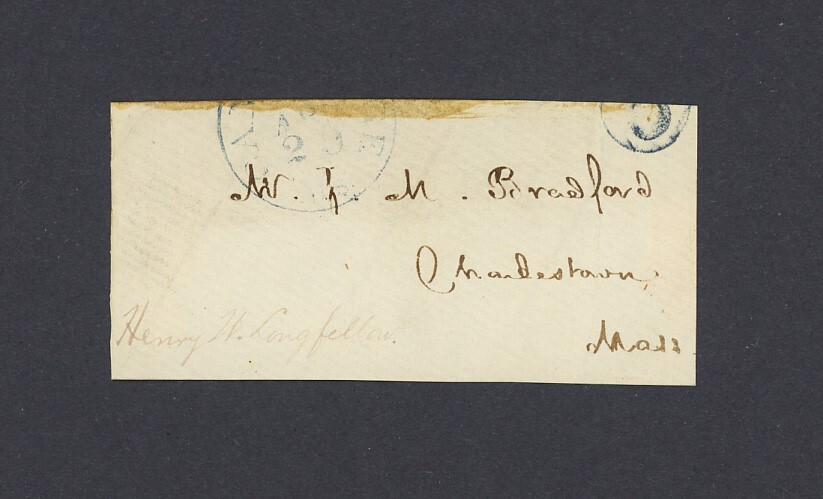 5
2
W. H. M. Bradford
Charlestown,
Mass.
Henry W. Longfellow.